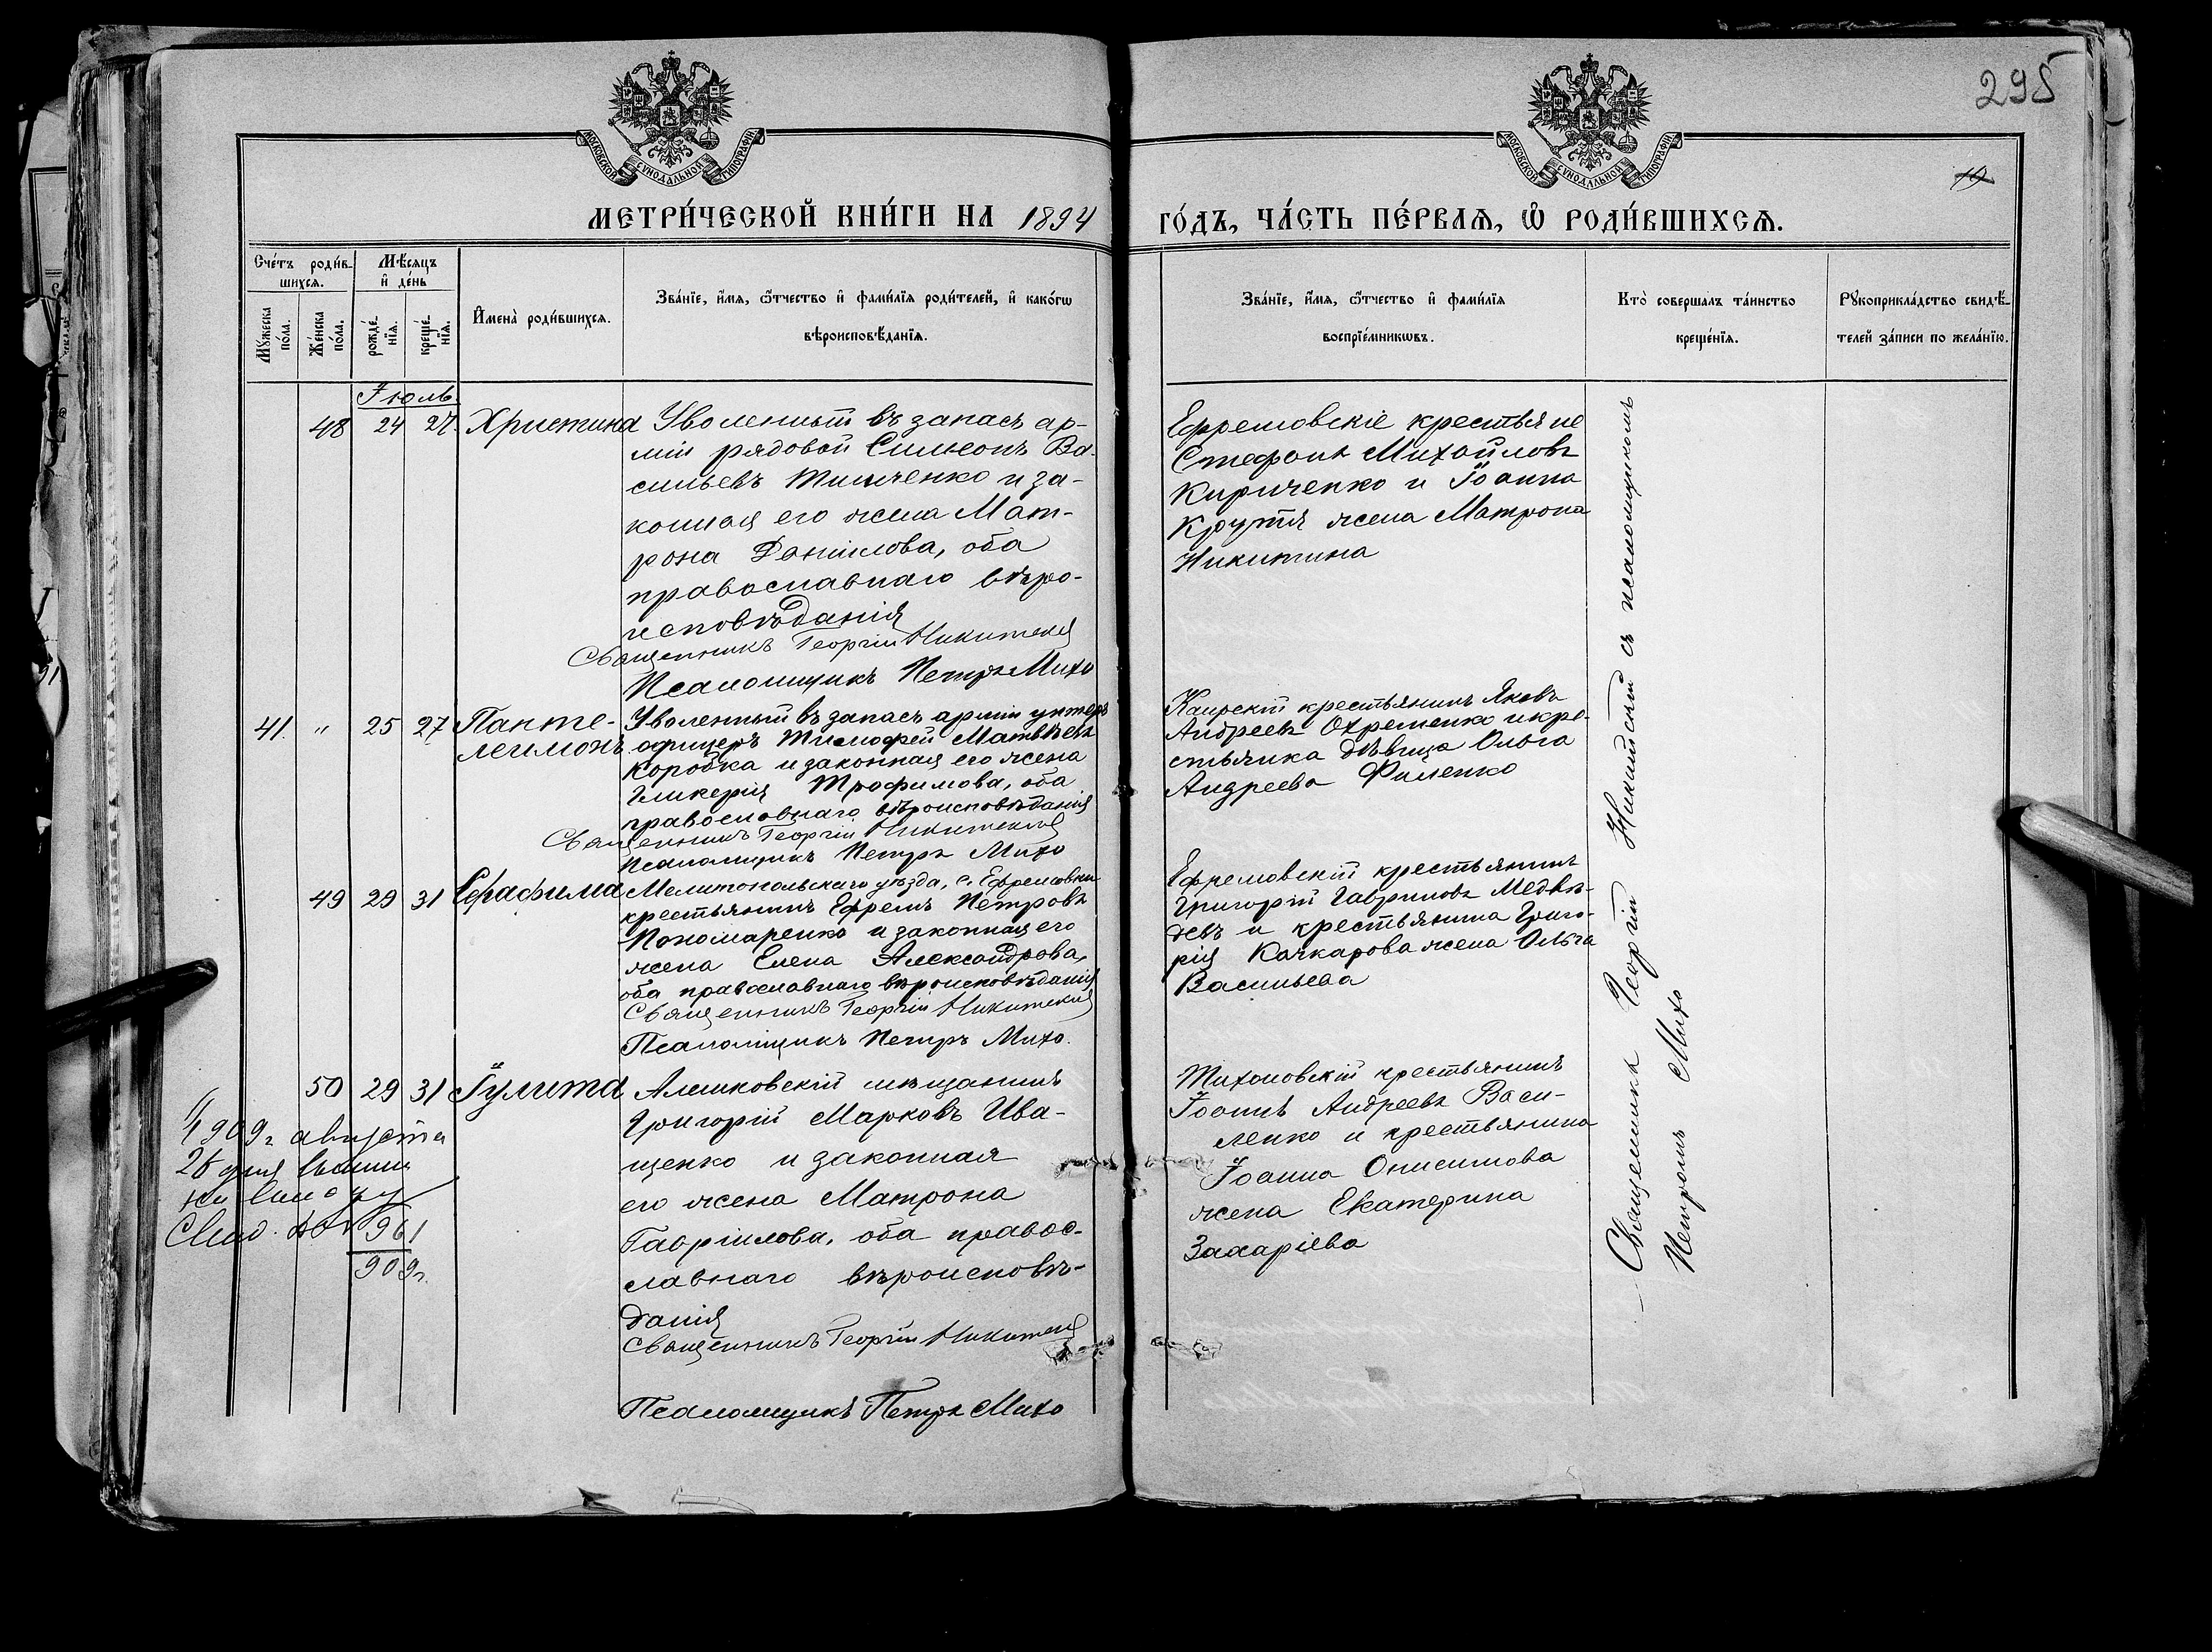 295
19
МОСКОВСКОЙ СѴНОДАЛЬНОЙ ТИПОГРАФІИ
МОСКОВСКОЙ СѴНОДАЛЬНОЙ ТИПОГРАФІИ
МЕТРИ́ЧЕСКОЙ КНИ́ГИ НА 1894 ГО́ДЪ, ЧА́СТЬ ПЕ́РВАѦ, Ѡ РОДИ́ВШИХСѦ.
Сче́тъ роди́в-
шихсѧ.
Мꙋ́жеска
по́ла.
Же́нска
по́ла.
Мѣ́сѧцъ
и҆ де́нь
рожде́-
нїѧ.
креще́-
нїѧ.
И҆мена̀ роди́вшихсѧ.
Зва́нїе, и҆́мѧ, ѻ҆́тчество и҆ фами́лїѧ роди́телей, и҆ како́гѡ
вѣроисповѣ́данїѧ.
Зва́нїе, и҆́мѧ, ѻ҆́тчество и҆ фами́лїѧ
воспрїе́мникѡвъ.
Кто̀ соверша́лъ та́инство
креще́нїѧ.
Рꙋкоприкла́дство свидѣ́-
телей за́писи по жела́нїю.
Іюль
48 24 27. Христина Уволенный въ запасъ ар-
міи рядовой Симеонъ Ва-
сильевъ Тимченко и за-
конная его жена Мат-
рона Даніилова, оба
православнаго вѣро-
исповѣданія
Священникъ Георгій Никитскій
Псаломщикъ Петръ Михо
Ефремовскіе крестьяне
Стефанъ Михайловъ
Кириченко и Іоанна
Крутія жена Матрона
Никитина
41. " 25 27 Панте-
леимонъ
Уволенный въ запасъ арміи унтеръ
офицеръ Тимофей Матвѣевъ
Коробка и законная его жена
Гликерія Трофимова, оба
православнаго вѣроисповѣданія
Священникъ Георгій Никитскій
Псаломщикъ Петръ Михо
Каирскій крестьянинъ Яковъ
Андреевъ Охременко и кре-
стьянка дѣвица Ольга
Андреева Фименко
49 29 31 Серафима Мелитопольскаго уѣзда, с. Ефремовки
крестьянинъ Ефремъ Петровъ
Пономаренко и законная его
жена Елена Александрова,
оба православнаго вѣроисповѣданія
Священникъ Георгій Никитскій
Псаломщикъ Петръ Михо.
Ефремовскій крестьянинъ
Григорій Гавриловъ Медвѣ-
девъ и крестьянина Григо-
рія Качкарова жена Ольга
Васильева
50 29 31 Іулита Алешковскій мѣщанинъ
Григорій Марковъ Ива-
щенко и законная
его жена Матрона
Гавріилова, оба правос-
лавнаго вѣроисповѣ-
данія
Священникъ Георгій Никитскій
Псаломщикъ Петръ Михо
Тихоновскій крестьянинъ
Іоаннъ Андреевъ Васи-
ленко и крестьянина
Іоанна Онисимова
жена Екатерина
Захаріева
1909 г августа
26 дня
961
909 г.
Священникъ Георгій Никитскій съ псаломщикомъ
Петромъ Михо